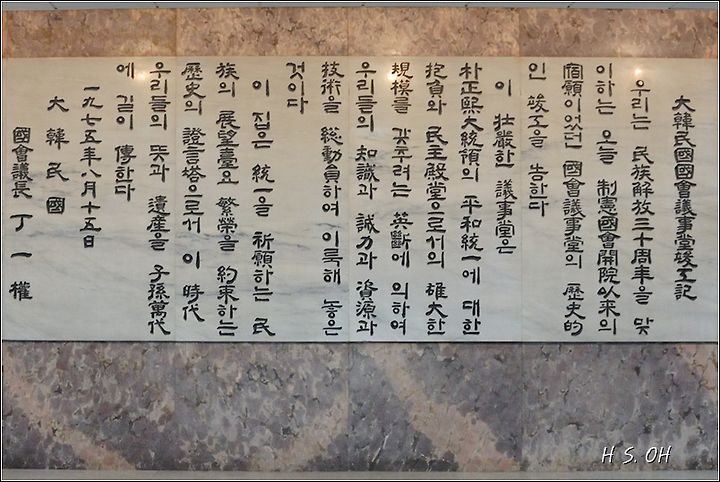 大韓民國國會議事堂竣工記
우리는 民族解放三十周年을 맞
이하는 오늘 制憲國會開院以來의
宿願이었던 國會議事堂의 歷史的
인 竣工을 告한다
이 壯嚴한 議事堂은
朴正熙大統領의 平和統一에 대한
抱負와 民主殿堂으로서의 雄大한
規模를 갖추려는 英斷에 의하여
우리들의 知識과 誠力과 資源과
技術을 総動員하여 이룩해 놓은
것이다
이 집은 統一을 祈願하는 民
族의 展望臺요 繁榮을 約束하는
歷史의 證言塔으로서 이 時代
우리들의 뜻과 遺産을 子孫萬代
에 길이 傳한다
一九七五年八月十五日
大韓民國
國會議長 丁一權
H S. OH